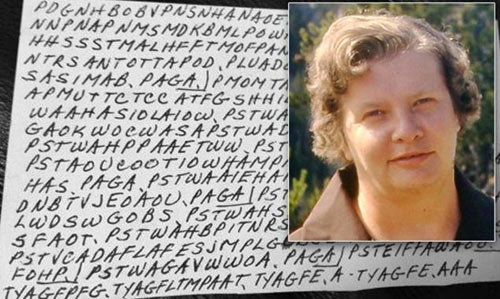 PDGNHBOBVPNSNHANAOET
NNPNAPNMSMDKBMLPOWN
HHSSSTMALHFFTMOFPAN
NTRSANTOTTAPOD. PLUADO
SASIMAB. PAGA.) PMOMTA
APMUTTCTCC ATFGSHHI
WAAHASIOLAIOW. PSTWA
GAOKWOCWASAPSTWAD
PSTWAHPPAAETWW. PSTW
PSTAOUCOOTIOWHAMPA
HAS. PAGA. PSTWAAIEHA
DNBTVJEOAOU. PAGA) PST
LWDSWGOBS. PSTWAHS
SFAOT. PSTWAHBPITNRS
PSTVCADAFLAFESJMPLG
FOHP.) PSTWAGAVWWOA. PAGA) PSTEIFFAWAOU
TYAGFPFG. TYAGFLTMPAAT. TYAGFE. A. TYAGFE. AAA